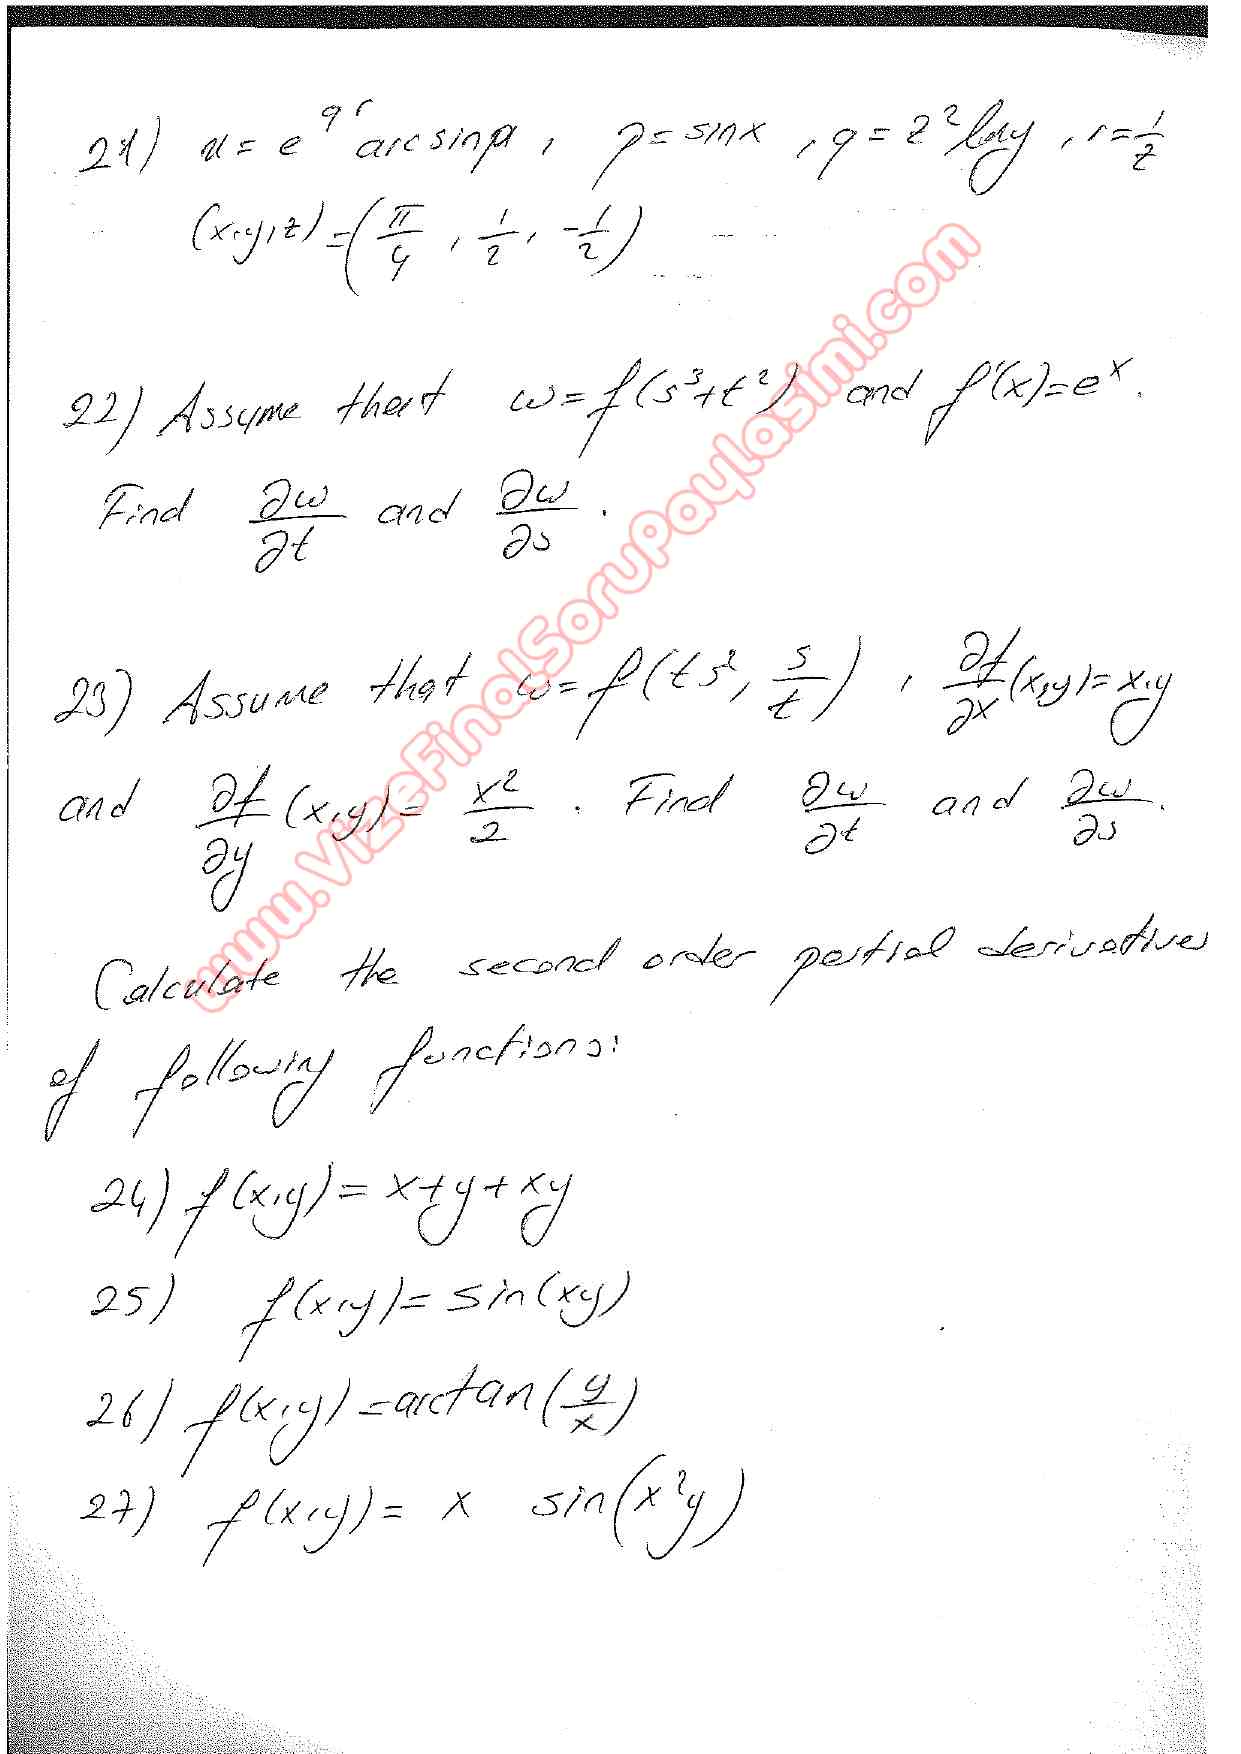 21) u = e^{qr} arcsin p , p = sin x , q = z² ln y , r = 1/z
(x,y,z) = (π/4 , 1/2 , -1/2)
22) Assume that w = f(s³+t²) and f'(x) = e^x.
Find ∂w/∂t and ∂w/∂s .
23) Assume that w = f(ts², s/t) , ∂f/∂x (x,y) = x.y
and ∂f/∂y (x,y) = x²/2 . Find ∂w/∂t and ∂w/∂s .
Calculate the second order partial derivatives
of following functions:
24) f(x,y) = x+y+xy
25) f(x,y) = sin(xy)
26) f(x,y) = arctan(y/x)
27) f(x,y) = x sin(x²y)
www.VizeFinalSoruPaylasimi.com